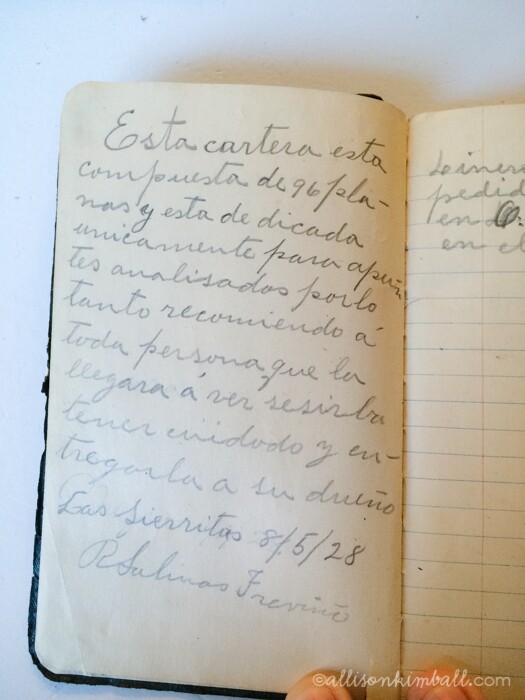 Esta cartera esta
compuesta de 96 pla-
nas y esta de dicada
unicamente para apun-
tes analisados por lo
tanto recomiendo á
toda persona que la
llegara á ver se sirba
tener cuidodo y en-
tregarla a su dueño
Las Sierritas 8/5/28
R Salinas Treviño
pedid
en
en el
©allisonkimball.com